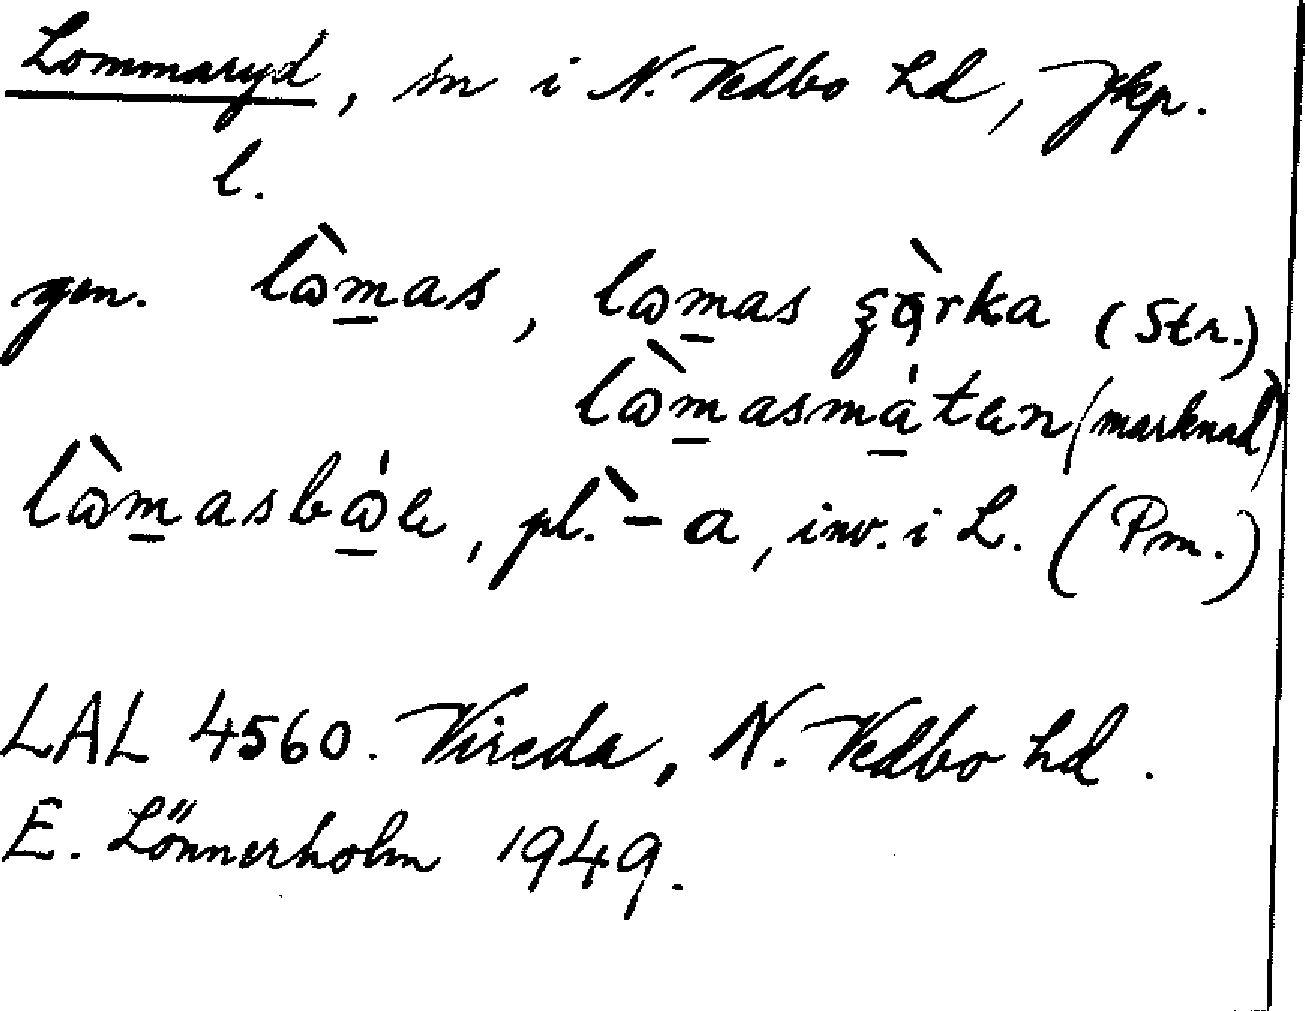 Lommaryd, sn i N. Vedbo hd, Jkp.
l.
gen. lὼm̲as, lωm̲as ʂὰrka (Str.)
lὼm̲asmá̲ten (marknad)
lὼm̲asbώ̲e, pl. ̀-a, inv. i L. (Pm.)
LAL 4560. Vireda, N. Vedbo hd.
E. Lönnerholm 1949.